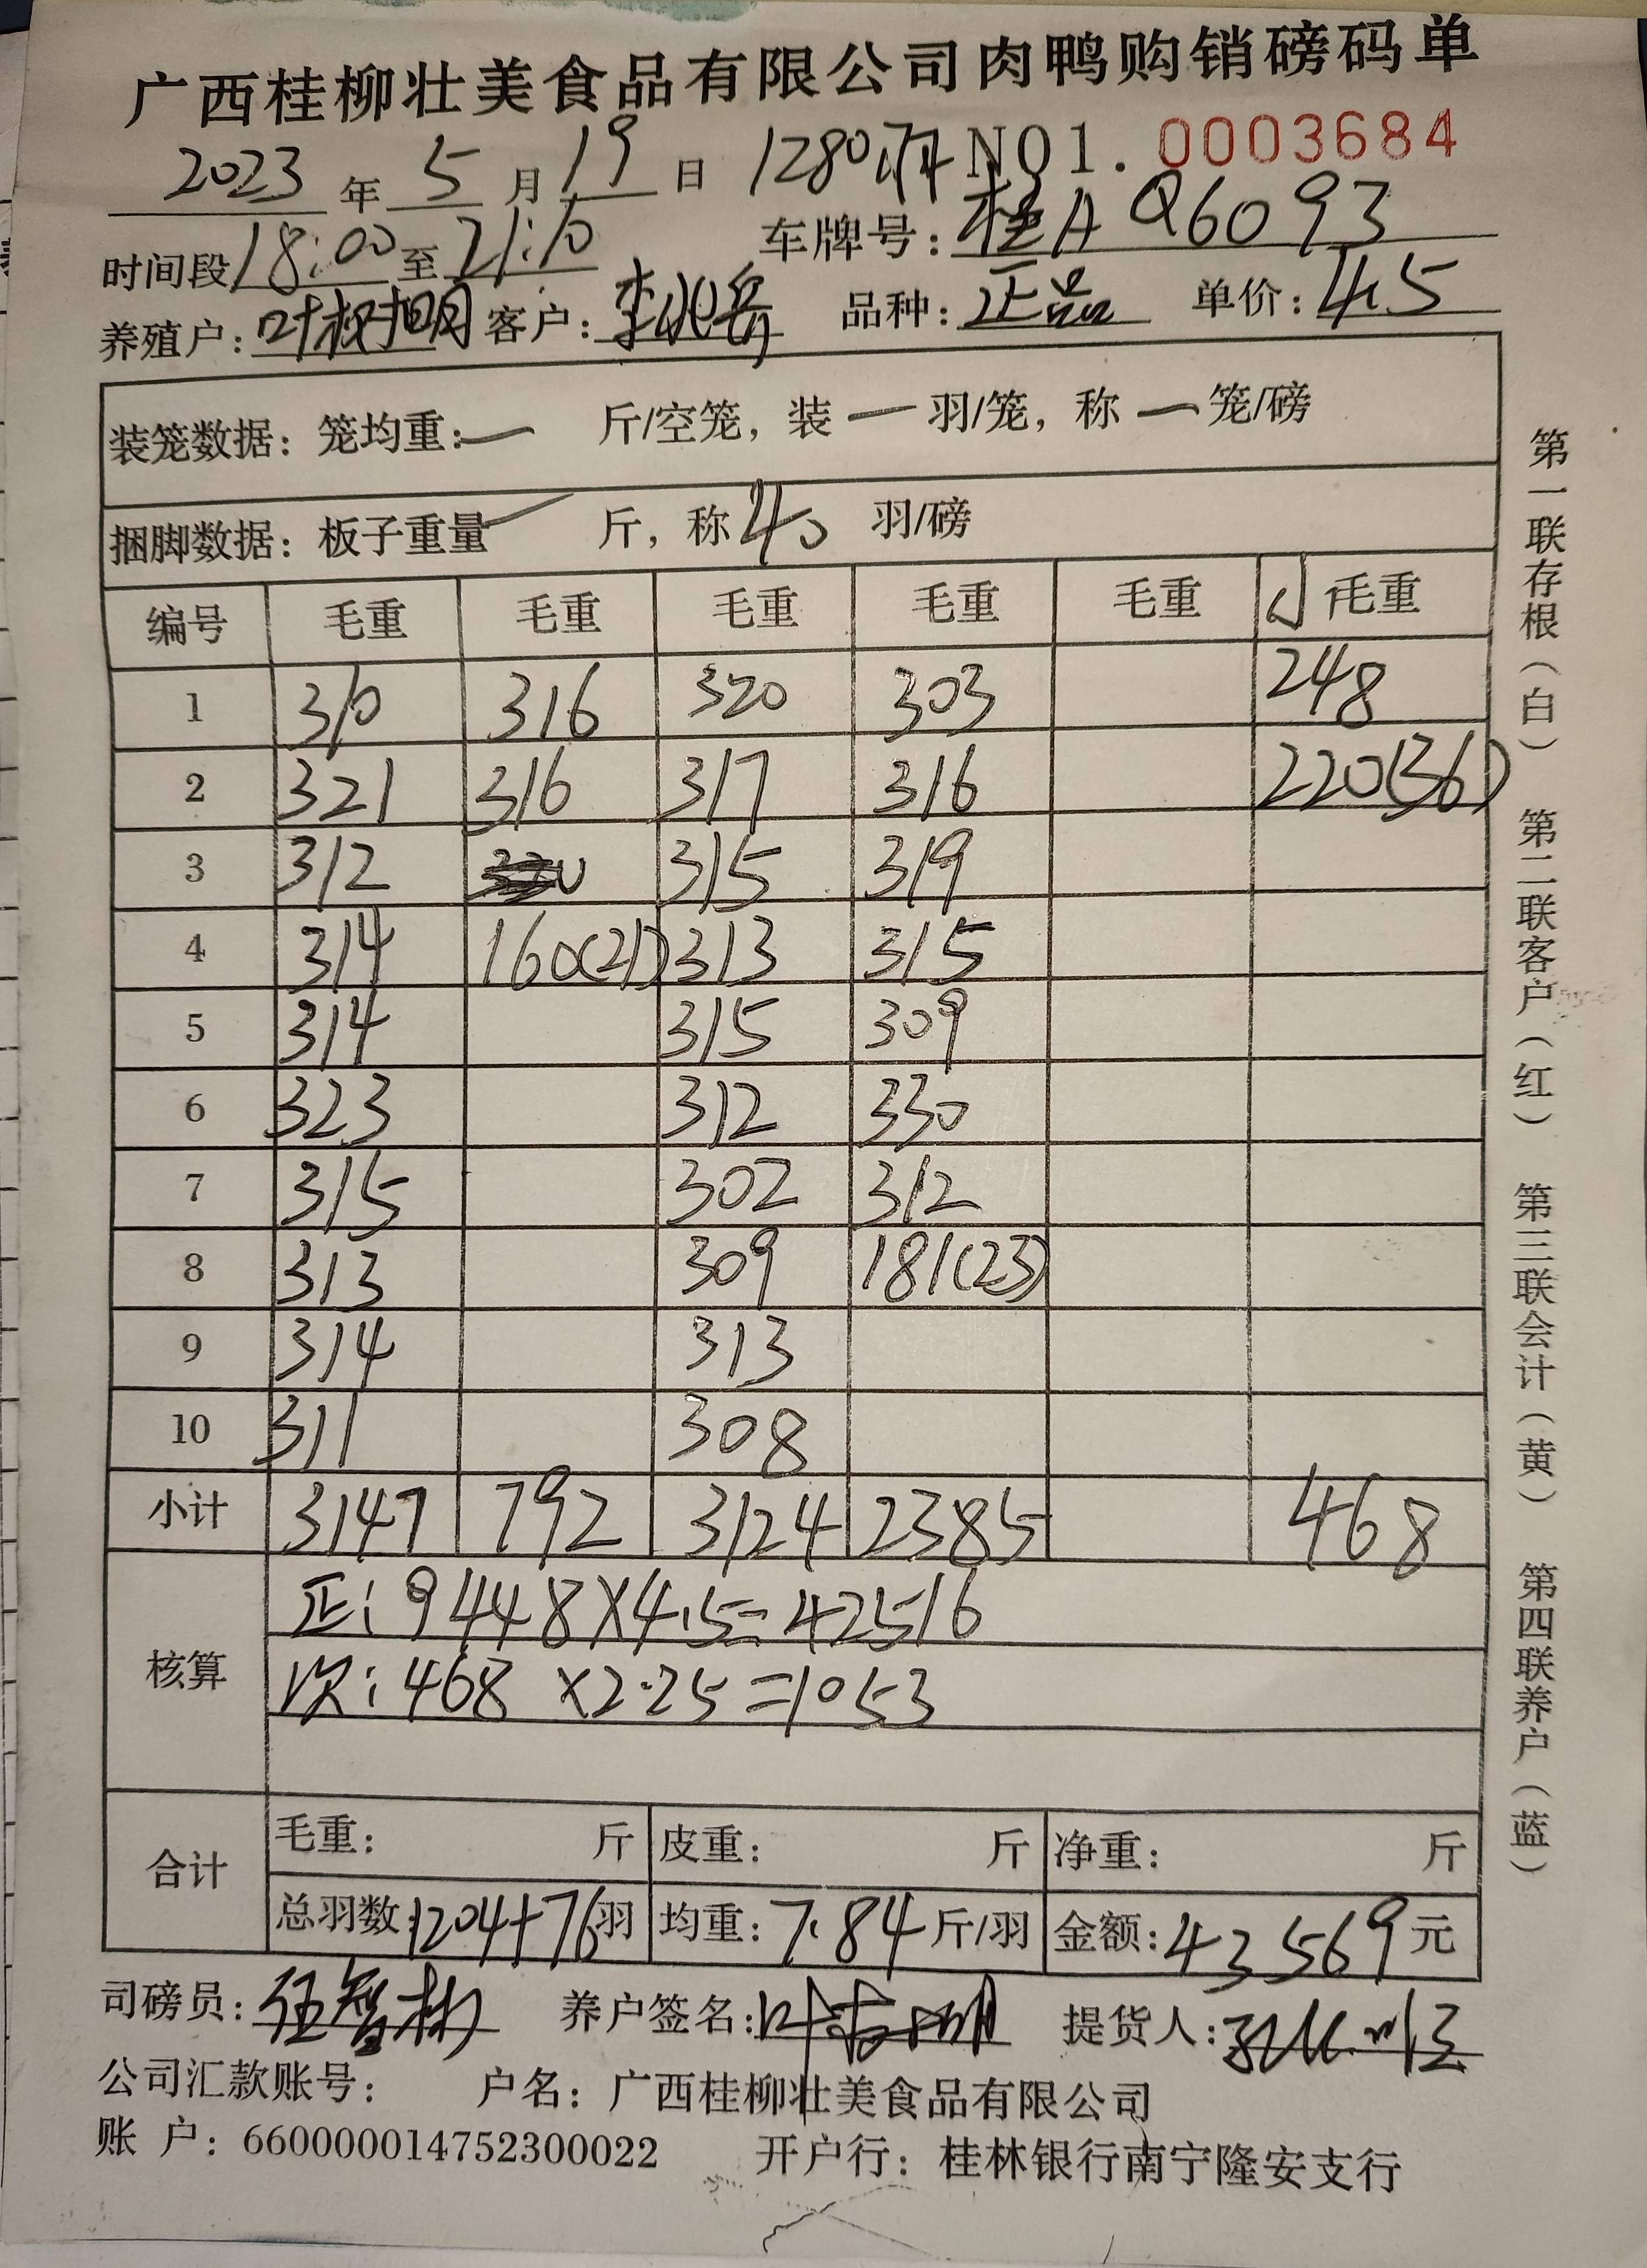 广西桂柳壮美食品有限公司肉鸭购销磅码单
2023 年 5 月 19 日 1280羽 NO1. 0003684
时间段 18:00 至 21:10 车牌号: 桂A Q6093
养殖户: 叶树明 客户: 李兆岳 品种: 正品 单价: 4.5
装笼数据: 笼均重: 一 斤/空笼, 装 一 羽/笼, 称 一 笼/磅
捆脚数据: 板子重量 一 斤, 称 40 羽/磅
编号 毛重 毛重 毛重 毛重 毛重 小 毛重
1 310 316 320 303 248
2 321 316 317 316 220(36)
3 312 315 319
4 314 160(21) 313 315
5 314 315 309
6 323 312 330
7 315 302 312
8 313 309 181(23)
9 314 313
10 311 308
小计 3147 792 3124 2385 468
核算
正: 9448×4.5=42516
次: 468 ×2.25=1053
合计
毛重: 斤 皮重: 斤 净重: 斤
总羽数: 1204+76羽 均重: 7.84 斤/羽 金额: 43569 元
司磅员: 伍智彬 养户签名: 提货人:
公司汇款账号: 户名: 广西桂柳壮美食品有限公司
账 户: 660000014752300022 开户行: 桂林银行南宁隆安支行
第一联存根(白) 第二联客户(红) 第三联会计(黄) 第四联养户(蓝)